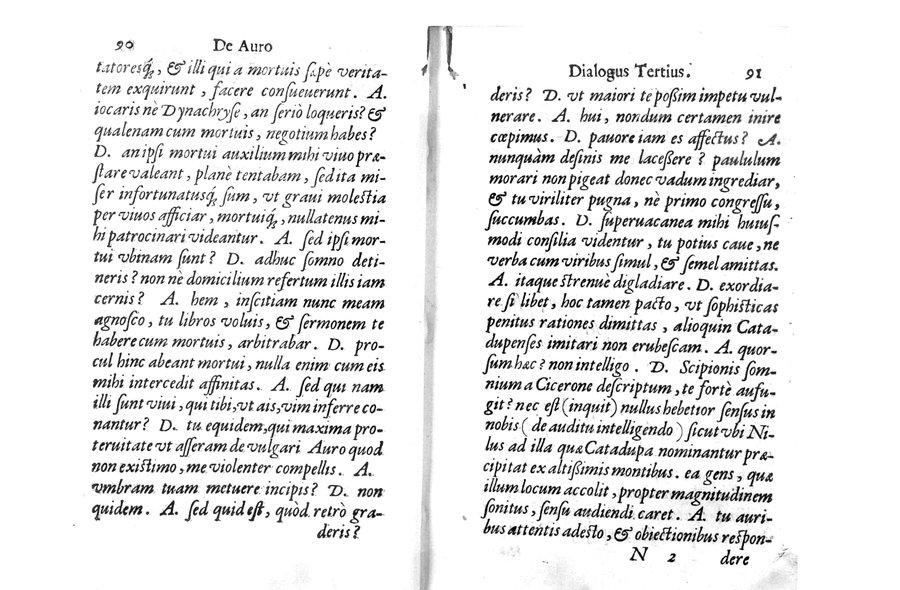 90 De Auro
tatoresq́;, & illi qui a mortuis sæpè verita-
tem exquirunt, facere consueuerunt. A.
iocaris nè Dynachryse, an seriò loqueris? &
qualenam cum mortuis, negotium habes?
D. an ipsi mortui auxilium mihi viuo præ-
stare valeant, planè tentabam, sed ita mi-
ser infortunatusq́; sum, vt graui molestia
per viuos afficiar, mortuiq́;, nullatenus mi-
hi patrocinari videantur. A. sed ipsi mor-
tui vbinam sunt? D. adhuc somno deti-
neris? non nè domicilium refertum illis iam
cernis? A. hem, inscitiam nunc meam
agnosco, tu libros voluis, & sermonem te
habere cum mortuis, arbitrabar. D. pro-
cul hinc abeant mortui, nulla enim cum eis
mihi intercedit affinitas. A. sed qui nam
illi sunt viui, qui tibi, vt ais, vim inferre co-
nantur? D. tu equidem, qui maxima pro-
teruitate vt asseram de vulgari Auro quod
non existimo, me violenter compellis. A.
vmbram tuam metuere incipis? D. non
quidem. A. sed quid est, quòd retrò gra-
deris?
Dialogus Tertius. 91
deris? D. vt maiori te possim impetu vul-
nerare. A. hui, nondum certamen inire
cœpimus. D. pauore iam es affectus? A.
nunquàm desinis me lacessere? paululum
morari non pigeat donec vadum ingrediar,
& tu viriliter pugna, nè primo congressu,
succumbas. D. superuacanea mihi huius-
modi consilia videntur, tu potius caue, ne
verba cum viribus simul, & semel amittas.
A. itaque strenuè digladiare. D. exordia-
re si libet, hoc tamen pacto, vt sophisticas
penitus rationes dimittas, alioquin Cata-
dupenses imitari non erubescam. A. quor-
sum hæc? non intelligo. D. Scipionis som-
nium a Cicerone descriptum, te fortè aufu-
git? nec est (inquit) nullus hebetior sensus in
nobis (de auditu intelligendo) sicut vbi Ni-
lus ad illa quæ Catadupa nominantur præ-
cipitat ex altissimis montibus. ea gens, quæ
illum locum accolit, propter magnitudinem
sonitus, sensu audiendi caret. A. tu auri-
bus attentis adesto, & obiectionibus respon-
N 2 dere